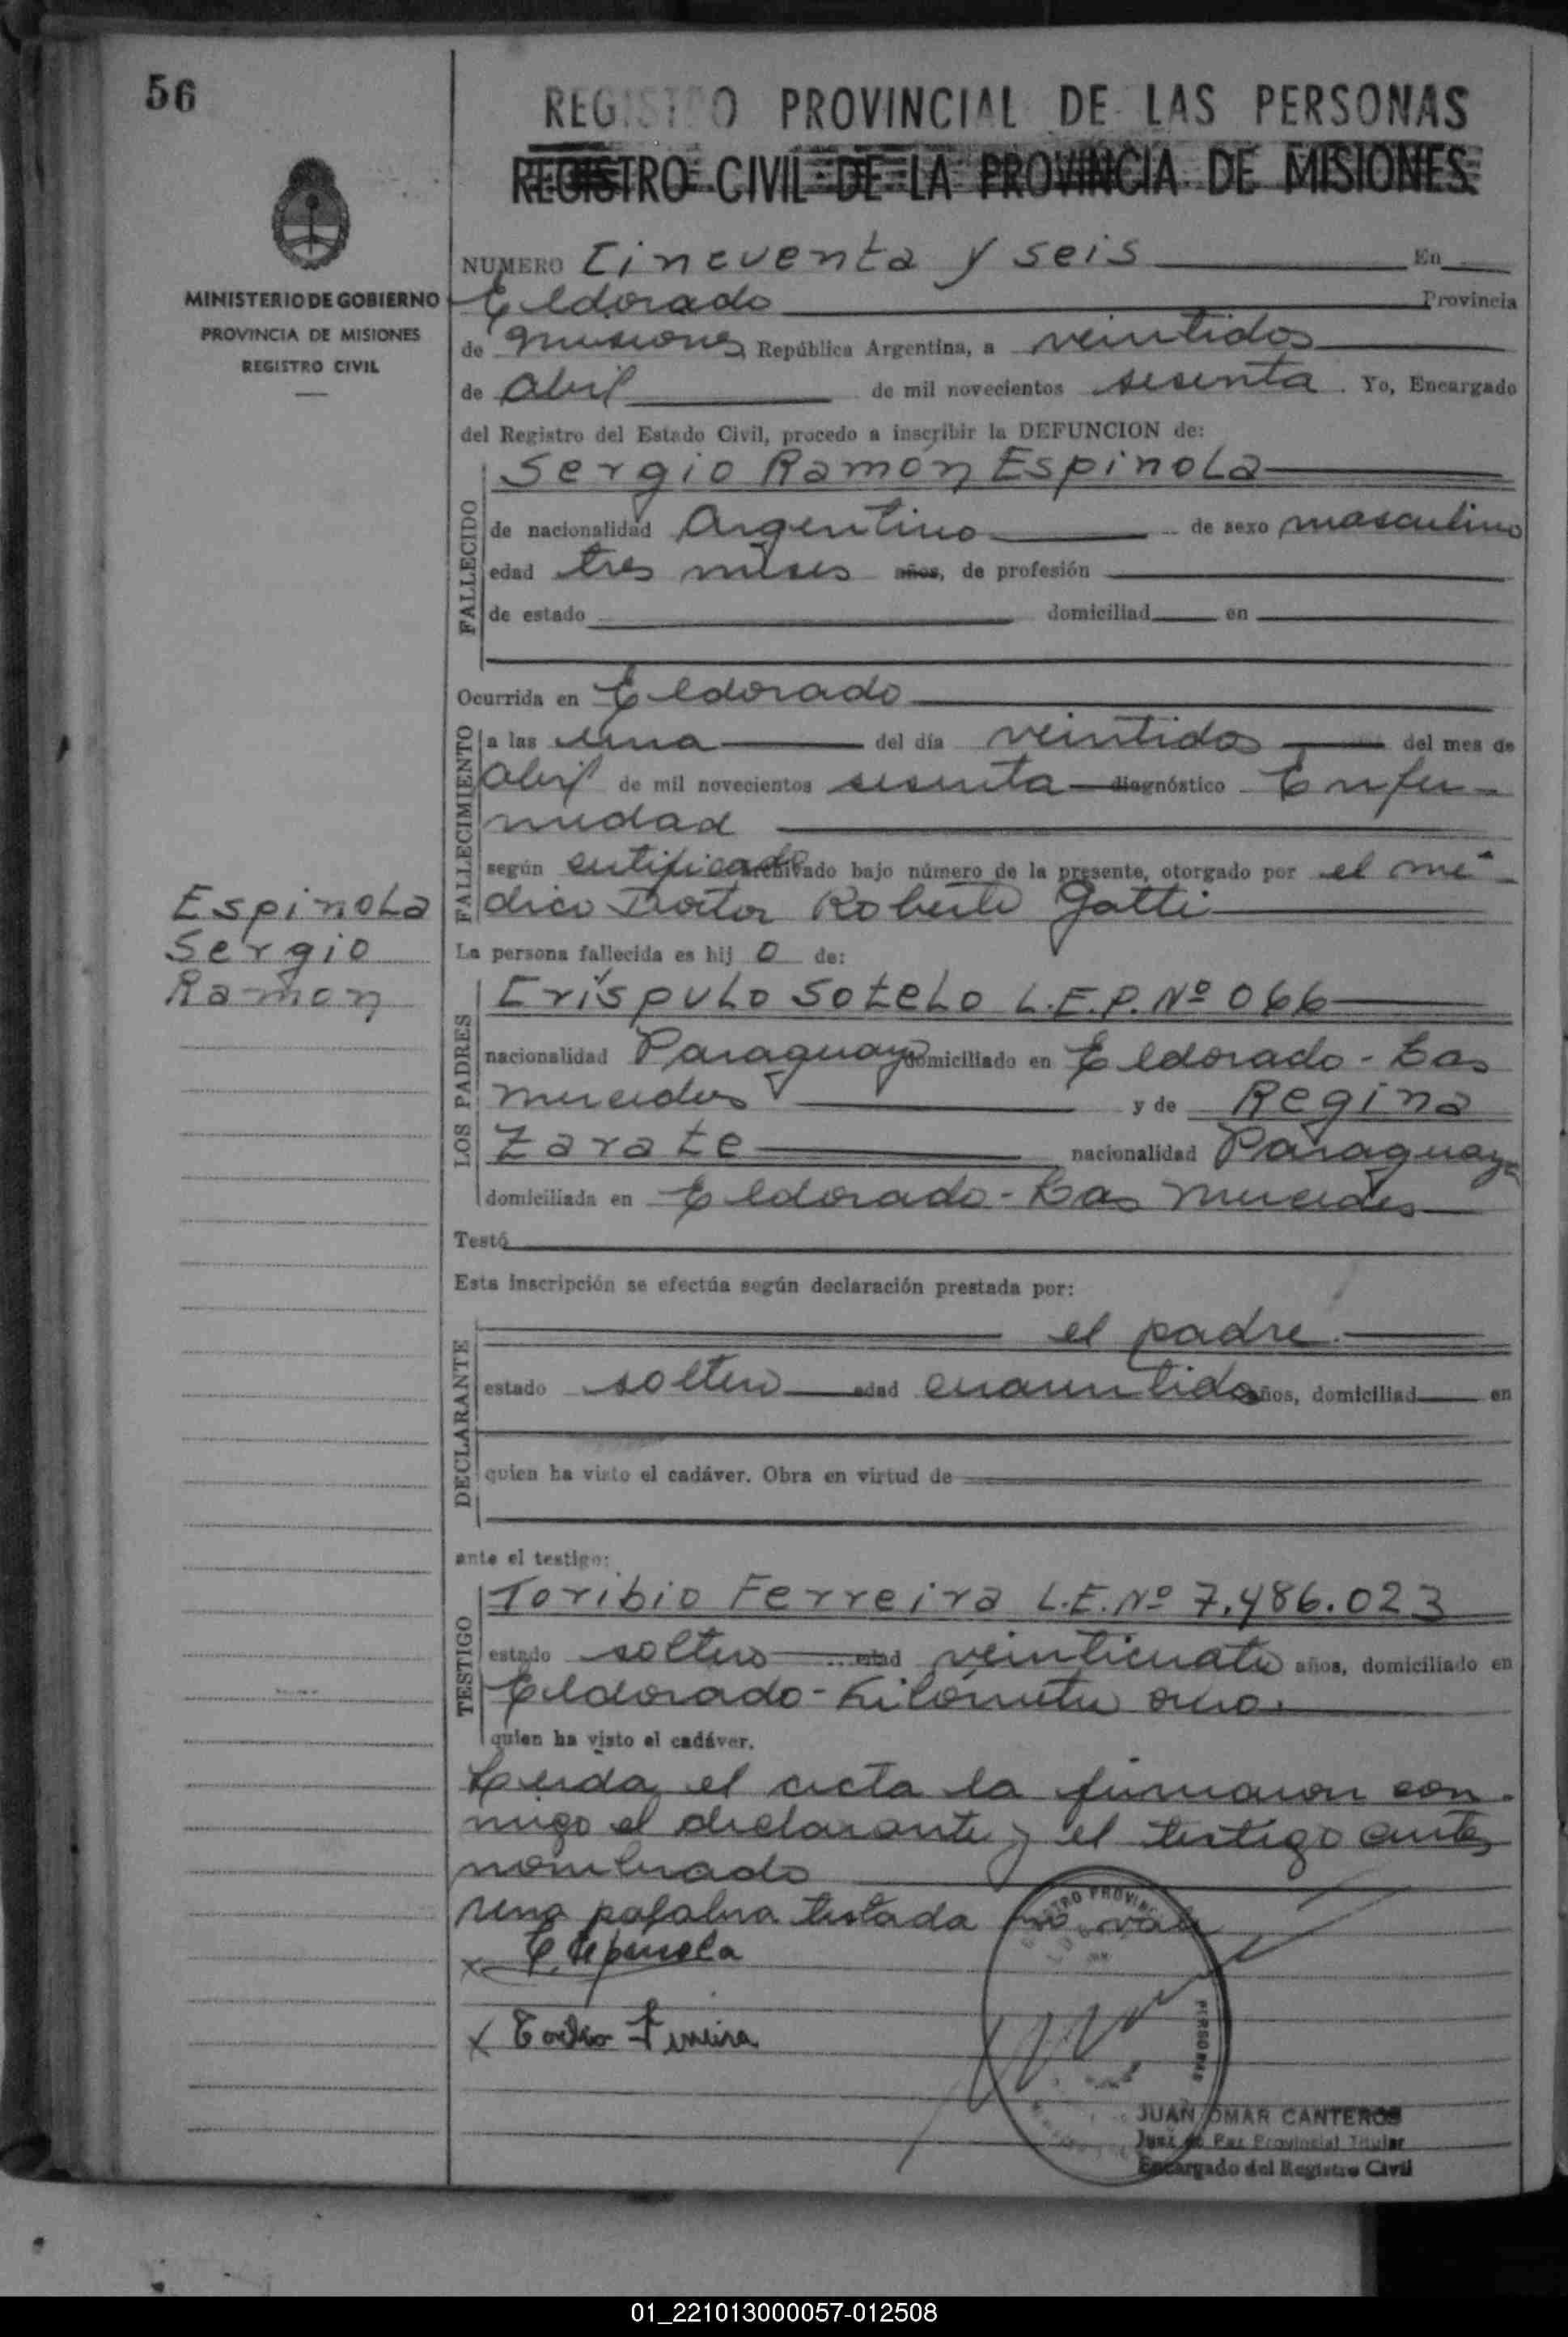 56
REGISTRO PROVINCIAL DE LAS PERSONAS
REGISTRO CIVIL DE LA PROVINCIA DE MISIONES
MINISTERIO DE GOBIERNO
PROVINCIA DE MISIONES
REGISTRO CIVIL
NUMERO Cincuenta y seis En
Eldorado Provincia
de Misiones República Argentina, a veintidos
de Abril de mil novecientos sesenta. Yo, Encargado
del Registro del Estado Civil, procedo a inscribir la DEFUNCION de:
Sergio Ramón Espinola
FALLECIDO
de nacionalidad Argentino de sexo masculino
edad tres meses años, de profesión
de estado domiciliad en
Ocurrida en Eldorado
FALLECIMIENTO
a las una del día veintidos del mes de
Abril de mil novecientos sesenta diagnóstico Enfer-
medad
según certificado archivado bajo número de la presente, otorgado por el mé-
dico Doctor Roberto Gatti
Espinola
Sergio
Ramon
La persona fallecida es hij o de:
LOS PADRES
Críspulo Sotelo L.E.P. Nº 066
nacionalidad Paraguayo domiciliado en Eldorado - Las
Mercedes y de Regina
Zarate nacionalidad Paraguaya
domiciliada en Eldorado - Las Mercedes
Testó
Esta inscripción se efectúa según declaración prestada por:
DECLARANTE
el padre.
estado soltero edad cuarentidos años, domiciliad en
quien ha visto el cadáver. Obra en virtud de
ante el testigo:
TESTIGO
Toribio Ferreira L.E. Nº 7.486.023
estado soltero edad veinticuatro años, domiciliado en
Eldorado - Kilómetro once.
quien ha visto el cadáver.
Leida el acta la firmaron con-
migo el declarante y el testigo antes
nombrado
una palabra testada no vale
x C. Espinola
x Toribio Ferreira
JUAN OMAR CANTEROS
Juez de Paz Provincial Titular
Encargado del Registro Civil
01_221013000057-012508